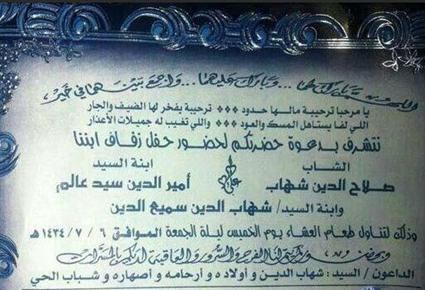 اللهم بارك لهما ... وبارك عليهما ... واجمع بينهما في خير
يا مرحبا ترحيبة مالها حدود *** ترحيبة يفخر لها الضيف والجار
اللي لفا يستاهل المسك والعود *** واللي تغيب له جميلات الأعذار
نتشرف بدعوة حضرتكم لحضور حفل زفاف ابننا
الشاب
ابنة السيد
صلاح الدين شهاب
أمير الدين سيد عالم
وابنة السيد/ شهاب الدين سميع الدين
وذلك لتناول طعام العشاء يوم الخميس ليلة الجمعة الموافق ٦ / ٧ / ١٤٣٤هـ
وبحضوركم يتم لنا الفرح والسرور والعاقبة لديكم بالمسرات
الداعون / السيد: شهاب الدين وأولاده وأرحامه وأصهاره وشباب الحي